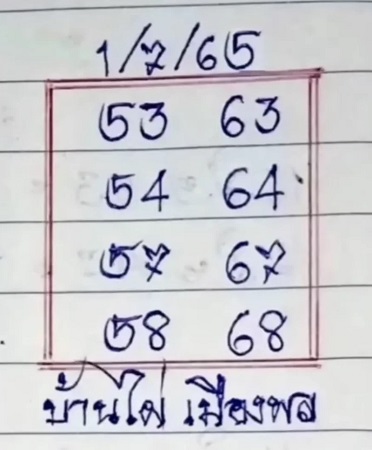 1/7/65
53 63
54 64
57 67
58 68
บ้านไผ่ เมืองพล